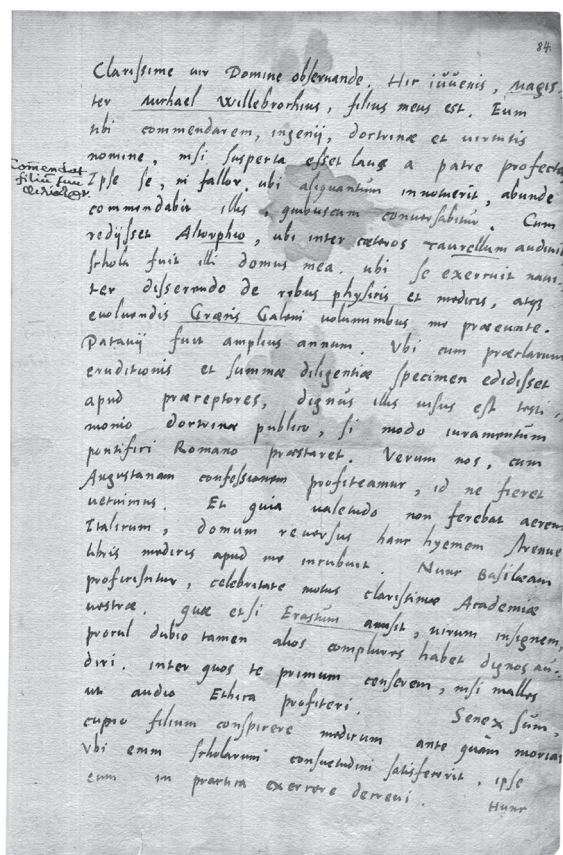 84.
Clarissime uir Domine obseruande. Hic iuuenis, Magis-
ter Michael Willebrochius, filius meus est. Eum
tibi commendarem, ingenij, doctrinæ et uirtutis
nomine, nisi suspecta esset laus a patre profecta
Comendat
filiu suu
Ipse se, ni fallor, ubi aliquantum innotuerit, abunde
commendabit illis, quibuscum conuersabitur. Cum
redijsset Altorphio, ubi inter cæteros Taurellum audiuit
schola fuit illi domus mea. ubi se exercuit naui-
ter disserendo de rebus physicis et medicis, atq3
euoluendis Græcis Galeni uoluminibus me præeunte.
Patauij fuit amplius annum. Vbi cum præclarum
eruditionis et summæ diligentiæ specimen edidisset
apud præceptores, dignus illis uisus est testi-
monio doctrinæ publico, si modo iuramentum
pontifici Romano præstaret. Verum nos, cum
Augustanam confessionem profiteamur, id ne fieret
uetuimus. Et quia ualetudo non ferebat aerem
Italicum, domum reuersus hanc hyemem strenue
libris medicis apud me incubuit. Nunc Basilæam
proficiscitur, celebritate motus clarissimæ Academiæ
uestræ. quæ etsi Erastum amisit, uirum insignem,
procul dubio tamen alios complures habet dignos au-
diri. inter quos te primum censerem, nisi malles
ut audio Ethica profiteri. Senex sum,
cupio filium conspicere medicum ante quàm moriar
Vbi enim scholarum consuetudini satisfecerit, ipse
eum in practica exercere decreui.
Hunc